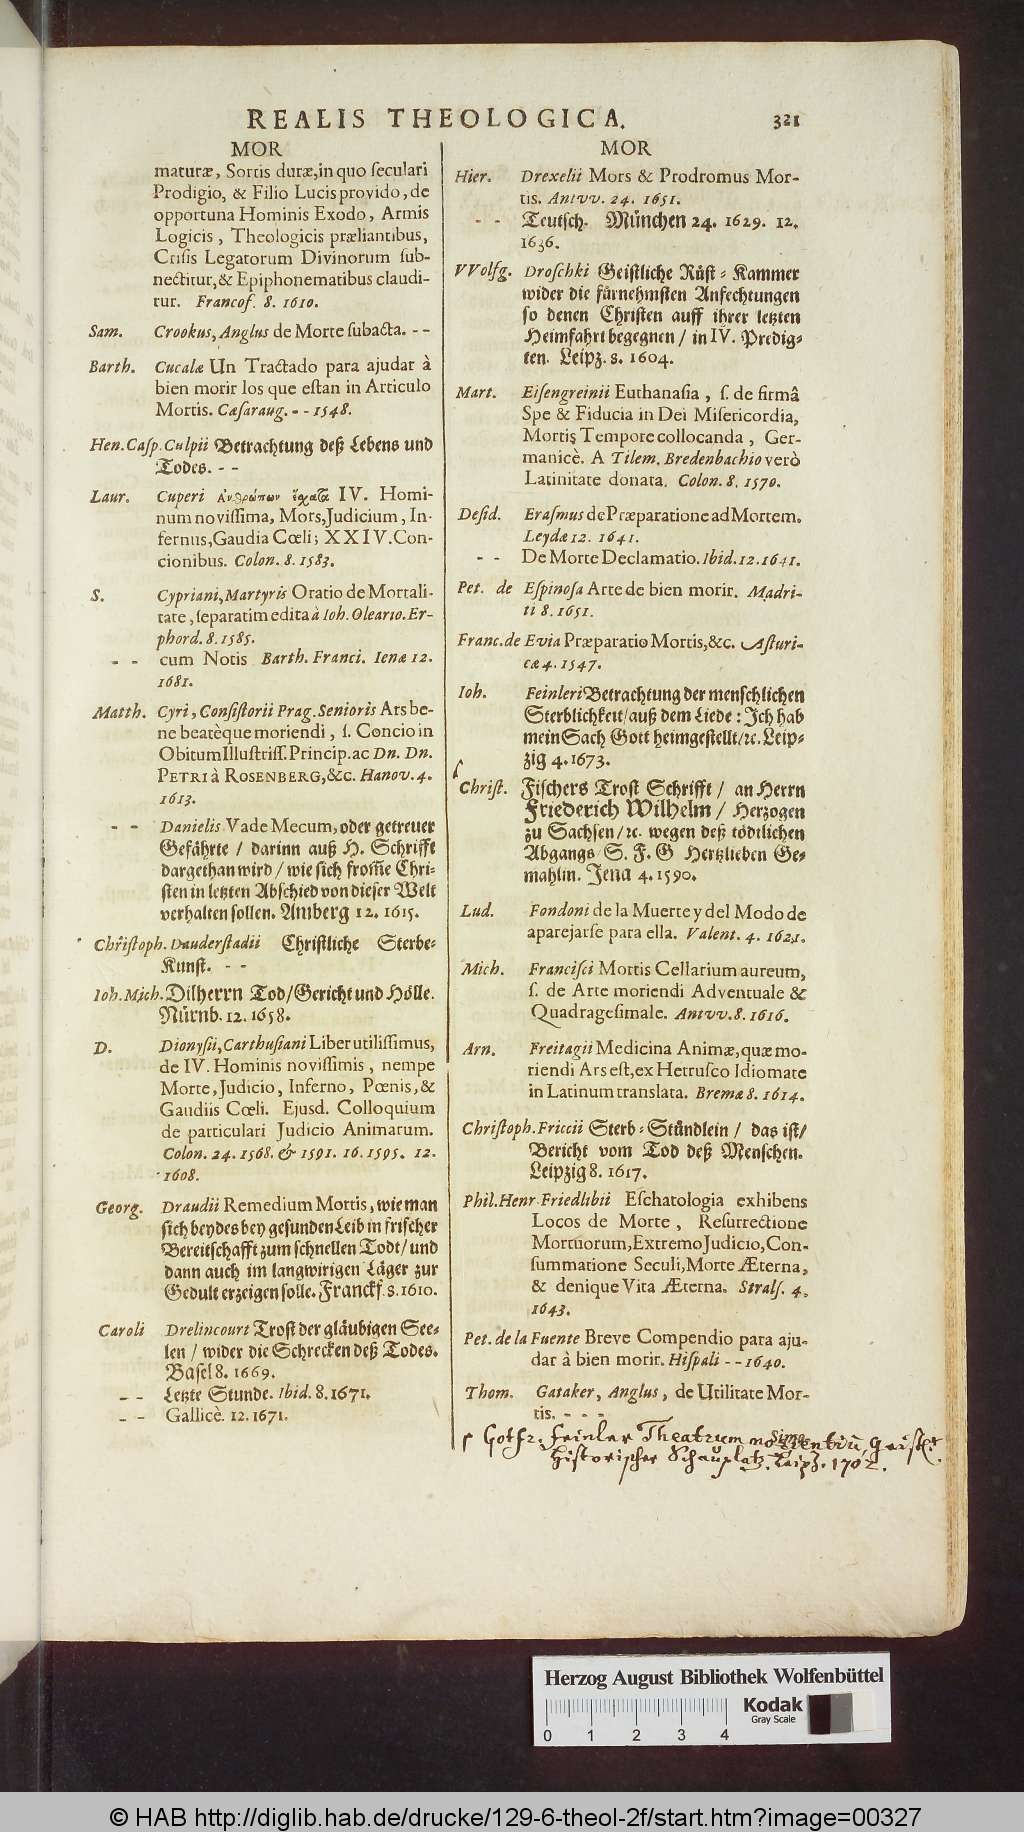 REALIS THEOLOGICA. 321
MOR
maturæ, Sortis duræ, in quo ſeculari
Prodigio, & Filio Lucis provido, de
opportuna Hominis Exodo, Armis
Logicis, Theologicis præliantibus,
Criſis Legatorum Divinorum ſub-
nectitur, & Epiphonematibus claudi-
tur. Francof. 8. 1610.
Sam. Crookus, Anglus de Morte ſubacta. - -
Barth. Cucalæ Un Tractado para ajudar à
bien morir los que eſtan in Articulo
Mortis. Cæſaraug. - - 1548.
Hen. Caſp. Culpii Betrachtung deß Lebens und
Todes. - -
Laur. Cuperi Ἀνθρώπων ἔχατα IV. Homi-
num noviſſima, Mors, Judicium, In-
fernus, Gaudia Cœli; XXIV. Con-
cionibus. Colon. 8. 1583.
S. Cypriani, Martyris Oratio de Mortali-
tate, ſeparatim edita à Ioh. Oleario. Er-
phord. 8. 1585.
- - cum Notis Barth. Franci. Ienæ 12.
1681.
Matth. Cyri, Conſiſtorii Prag. Senioris Ars be-
ne beatèque moriendi, ſ. Concio in
Obitum Illuſtriſſ. Princip. ac Dn. Dn.
PETRI à ROSENBERG, &c. Hanov. 4.
1613.
- - Danielis Vade Mecum, oder getreuer
Gefährte / darinn auß H. Schrifft
dargethan wird / wie ſich from̃e Chri-
ſten in letzten Abſchied von dieſer Welt
verhalten ſollen. Amberg 12. 1615.
Chriſtoph. Dauderſtadii Chriſtliche Sterbe-
Kunſt. - -
Ioh. Mich. Dilherrn Tod / Gericht und Hölle.
Nürnb. 12. 1658.
D. Dionyſii, Carthuſiani Liber utiliſſimus,
de IV. Hominis noviſſimis, nempe
Morte, Judicio, Inferno, Pœnis, &
Gaudiis Cœli. Ejusd. Colloquium
de particulari Judicio Animarum.
Colon. 24. 1568. & 1591. 16. 1595. 12.
1608.
Georg. Draudii Remedium Mortis, wie man
ſich beydes bey geſunden Leib in friſcher
Bereitſchafft zum ſchnellen Todt / und
dann auch im langwirigen Läger zur
Gedult erzeigen ſolle. Franckf. 8. 1610.
Caroli Drelincourt Troſt der gläubigen See-
len / wider die Schrecken deß Todes.
Baſel 8. 1669.
- - Letzte Stunde. Ibid. 8. 1671.
- - Gallicè. 12. 1671.
MOR
Hier. Drexelii Mors & Prodromus Mor-
tis. Antvv. 24. 1651.
- - Teutſch. München 24. 1629. 12.
1636.
VVolfg. Droſchki Geiſtliche Rüſt-Kammer
wider die fürnehmſten Anfechtungen
ſo denen Chriſten auff ihrer letzten
Heimfahrt begegnen / in IV. Predig-
ten. Leipz. 8. 1604.
Mart. Eiſengreinii Euthanaſia, ſ. de firmâ
Spe & Fiducia in Dei Miſericordia,
Mortis Tempore collocanda, Ger-
manicè. A Tilem. Bredenbachio verò
Latinitate donata. Colon. 8. 1570.
Deſid. Eraſmus de Præparatione ad Mortem.
Leydæ 12. 1641.
- - De Morte Declamatio. Ibid. 12. 1641.
Pet. de Eſpinoſa Arte de bien morir. Madri-
ti 8. 1651.
Franc. de Evia Præparatio Mortis, &c. Aſturi-
cæ 4. 1547.
Ioh. Feinleri Betrachtung der menſchlichen
Sterblichkeit / auß dem Liede: Ich hab
mein Sach Gott heimgeſtellt / ꝛc. Leip-
zig 4. 1673.
Chriſt. Fiſchers Troſt Schrifft / an Herrn
Friederich Wilhelm / Herzogen
zu Sachſen / ꝛc. wegen deß tödtlichen
Abgangs S. F. G Hertzlieben Ge-
mahlin. Jena 4. 1590.
Lud. Fondoni de la Muerte y del Modo de
aparejarſe para ella. Valent. 4. 1621.
Mich. Franciſci Mortis Cellarium aureum,
ſ. de Arte moriendi Adventuale &
Quadrageſimale. Antvv. 8. 1616.
Arn. Freitagii Medicina Animæ, quæ mo-
riendi Ars eſt, ex Hetruſco Idiomate
in Latinum translata. Bremæ 8. 1614.
Chriſtoph. Friccii Sterb-Stündlein / das iſt /
Bericht vom Tod deß Menſchen.
Leipzig 8. 1617.
Phil. Henr. Friedlibii Eſchatologia exhibens
Locos de Morte, Reſurrectione
Mortuorum, Extremo Judicio, Con-
ſummatione Seculi, Morte Æterna,
& denique Vita Æterna. Stralſ. 4.
1643.
Pet. de la Fuente Breve Compendio para aju-
dar à bien morir. Hiſpali - - 1640.
Thom. Gataker, Anglus, de Utilitate Mor-
tis. - - -
Gotfr. Feinler Theatrum
Historischer Schauplatz. Leipz. 1702.
Herzog August Bibliothek Wolfenbüttel
Kodak
Gray Scale
0 1 2 3 4
© HAB http://diglib.hab.de/drucke/129-6-theol-2f/start.htm?image=00327